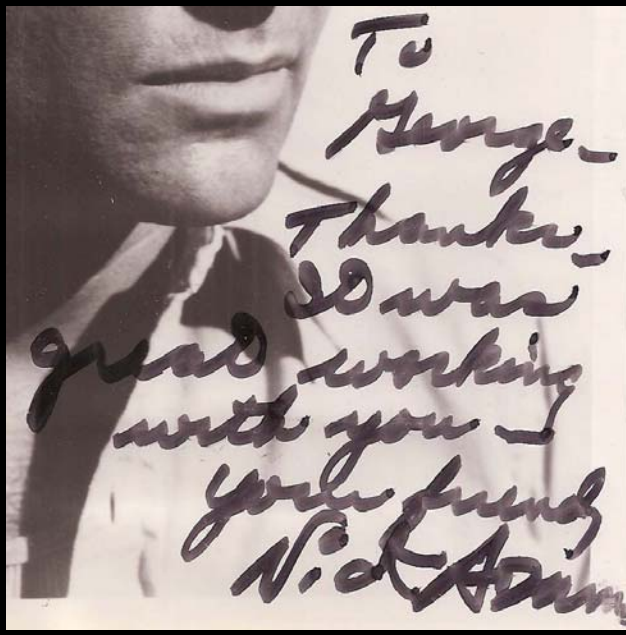 To
George-
Thanks-
It was
great working
with you -
your friend,
Nick Adams